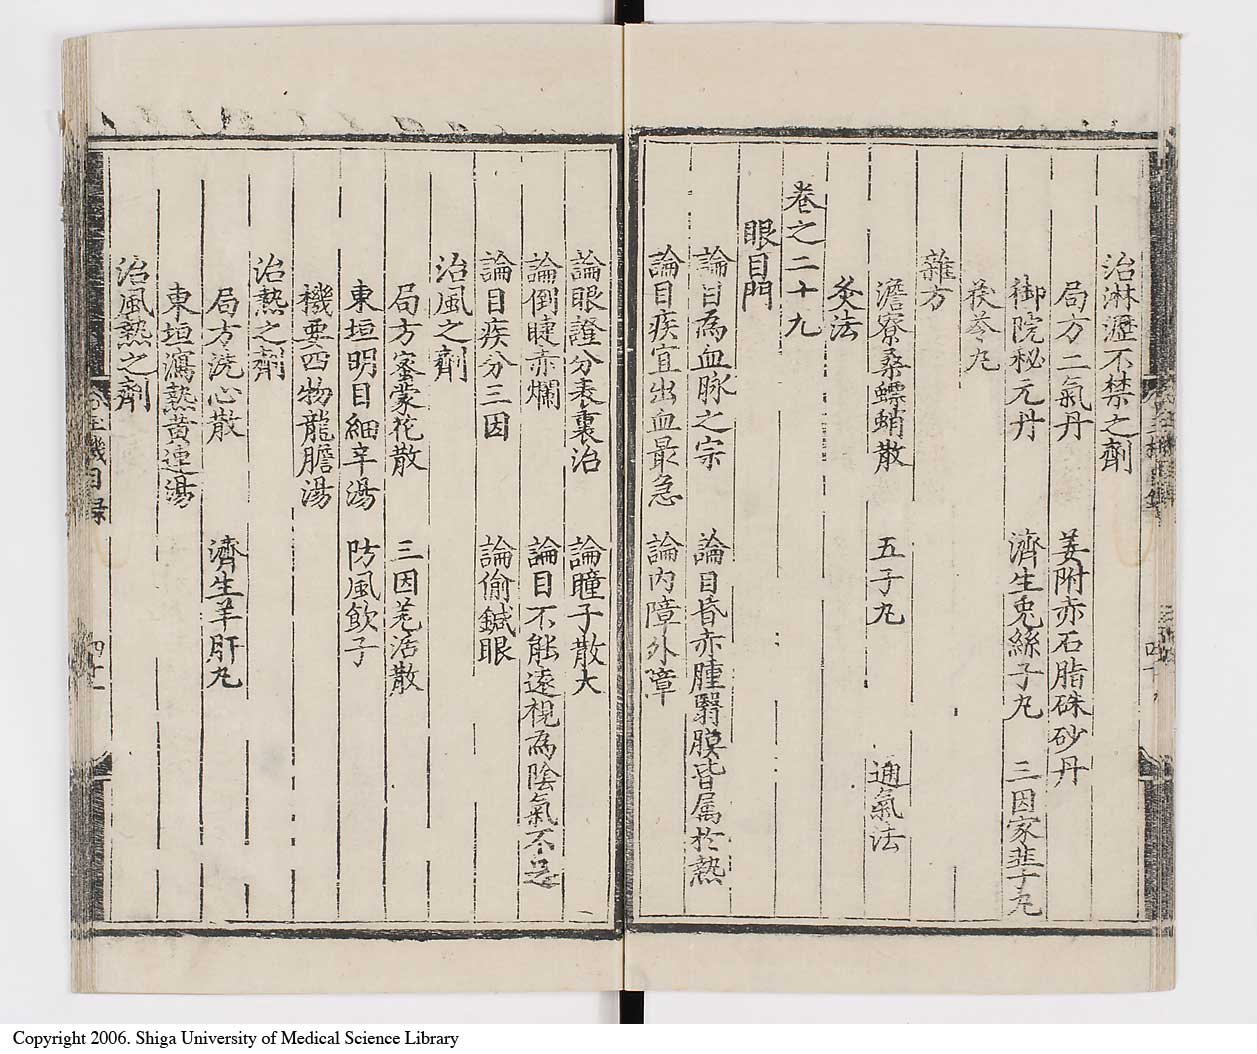 治淋瀝不禁之劑
局方二氣丹 姜附赤石脂硃砂丹
御院秘元丹 濟生兎絲子丸 三因家韭子丸
茯苓丸
雜方
澹寮桑螵蛸散 五子丸 通氣法
灸法
卷之二十九
眼目門
論目為血脉之宗 論目昏赤腫翳膜皆属於熱
論目疾宜出血最急 論内障外障
論眼證分表裏治 論瞳子散大
論倒睫赤爛 論目不能遠視為陰氣不足
論目疾分三因 論偷鍼眼
治風之劑
局方蜜蒙花散 三因羌活散
東垣明目細辛湯 防風飲子
機要四物龍膽湯
治熱之劑
局方洗心散 濟生羊肝丸
東垣瀉熱黄連湯
治風熱之劑
玉機目録
四十一
Copyright 2006. Shiga University of Medical Science Library